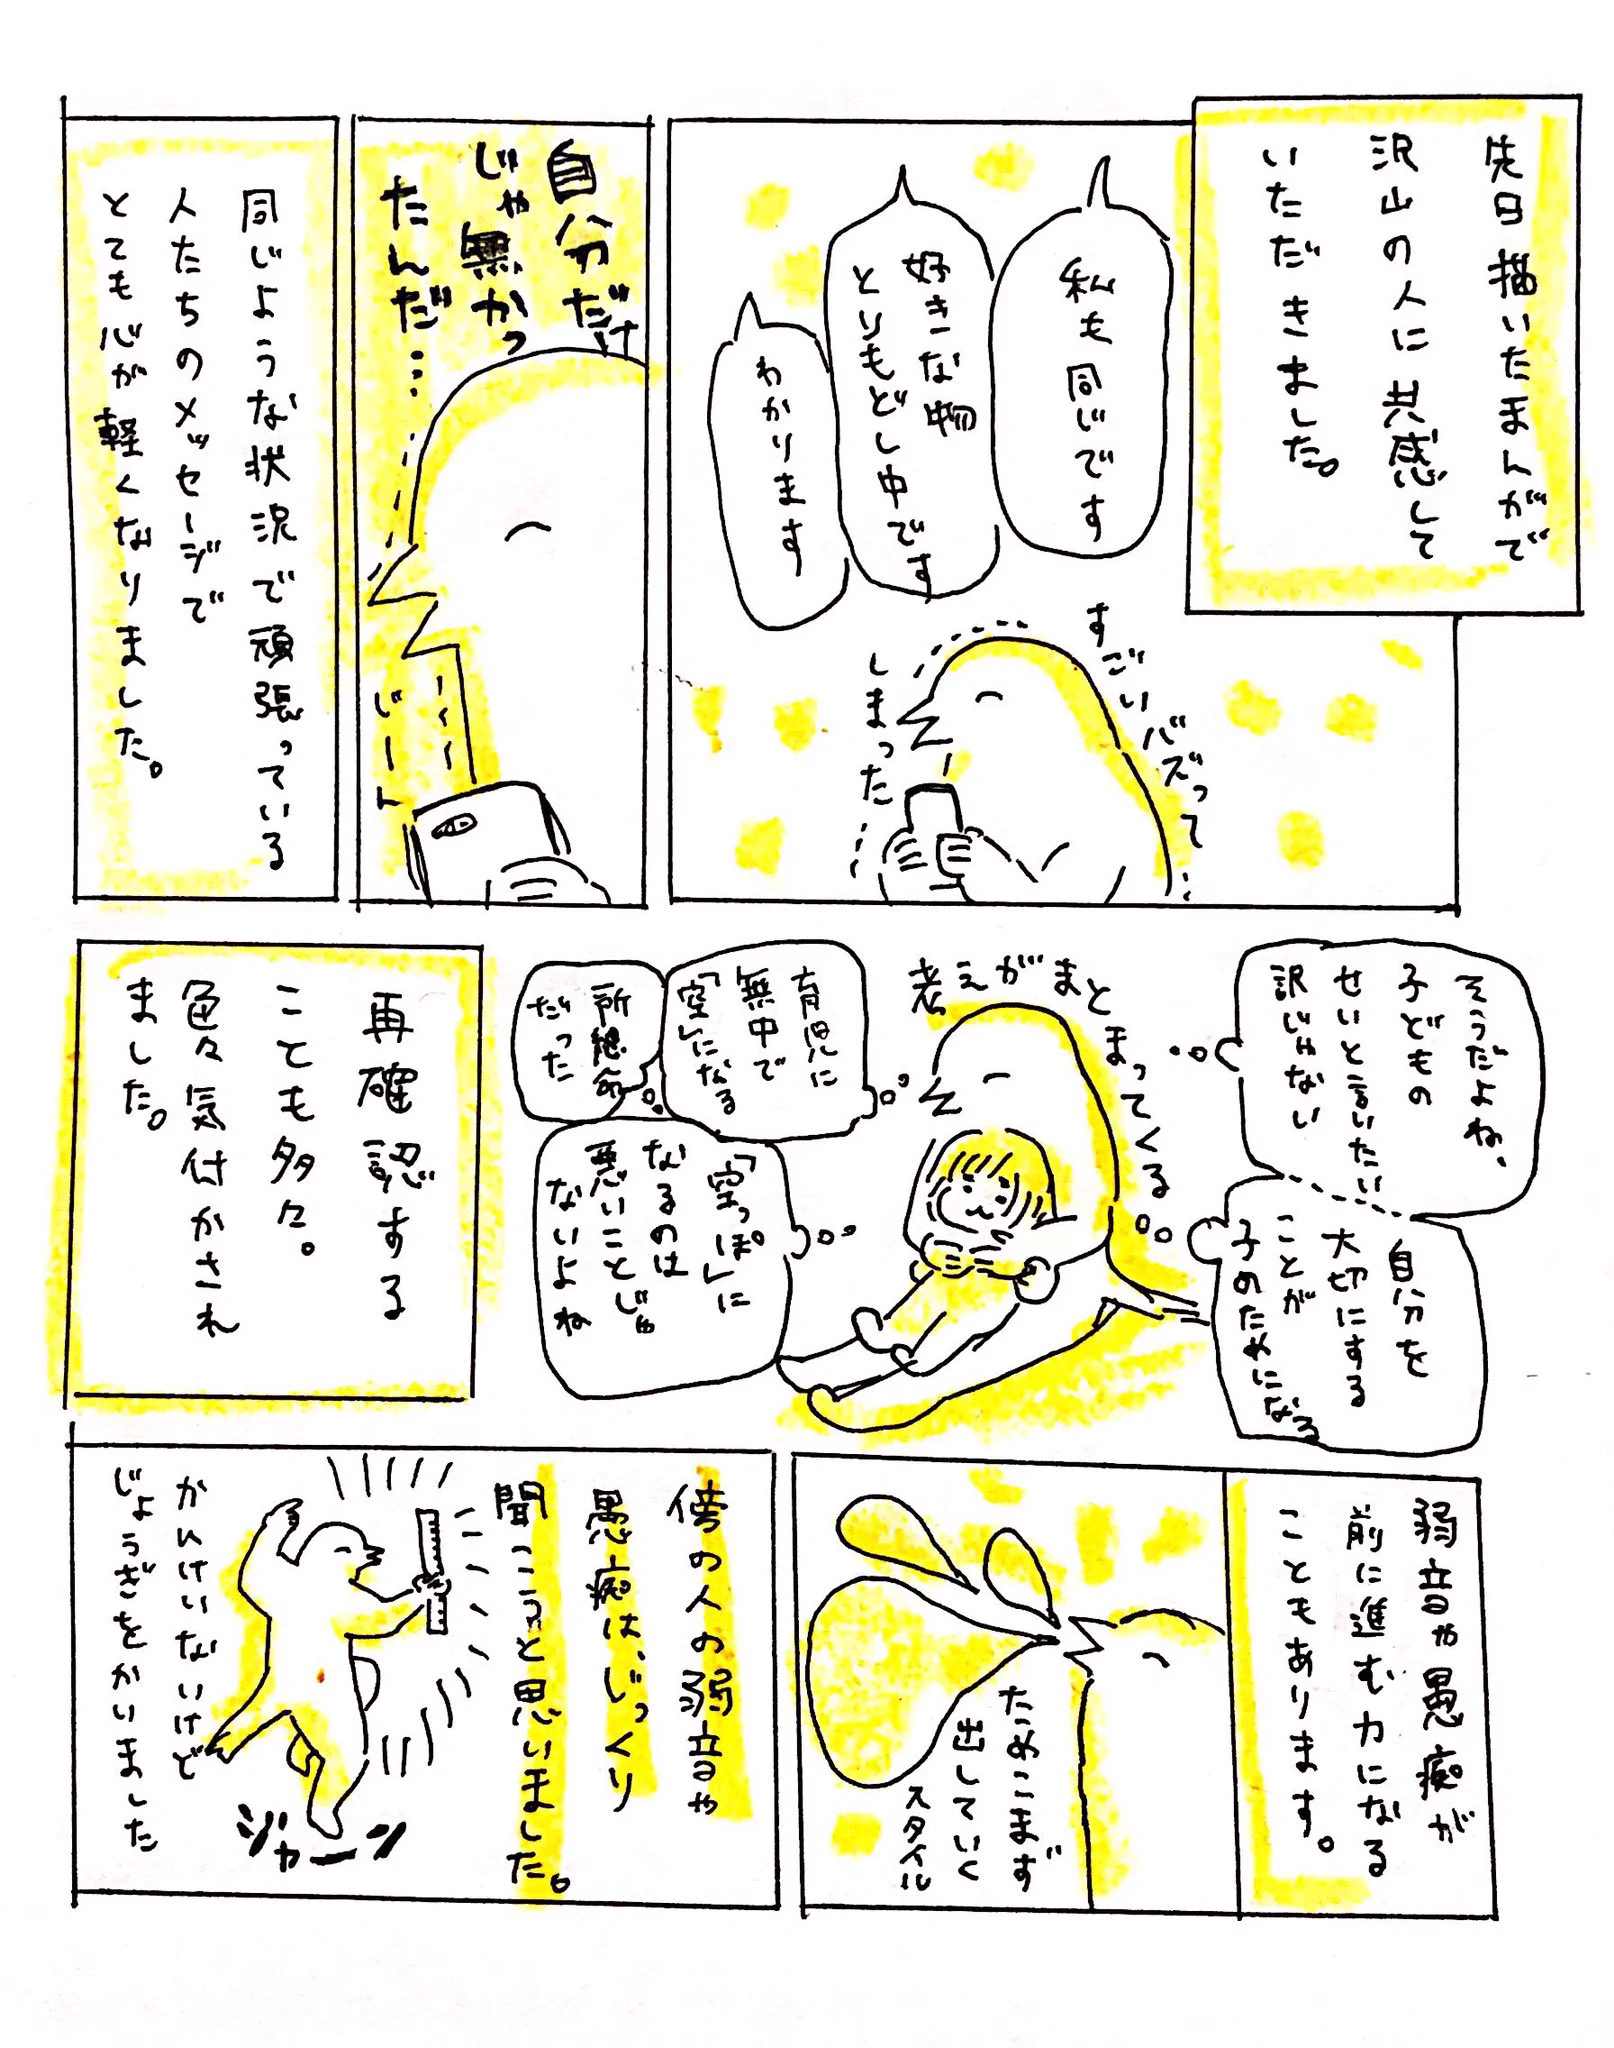 先日描いたまんがで
沢山の人に共感して
いただきました。
私も同じです
好きな物
とりもどし中です
わかります
すごいバズって
しまった
自分だけ
じゃ無かっ
たんだ…
じーん
同じような状況で頑張っている
人たちのメッセージで
とても心が軽くなりました。
そうだよね、
子どもの
せいと言いたい
訳じゃない
自分を
大切にする
ことが
子のためになる
考えがまとまってくる
育児に
無中で
「空」になる
所懸命
だった
「空っぽ」に
なるのは
悪いことじゃ
ないよね
再確認する
ことも多々。
色々気付かされ
ました。
弱音や愚痴が
前に進む力になる
こともあります。
ためこまず
出していく
スタイル
傍の人の弱音や
愚痴は、じっくり
聞こうと思いました。
ジャーン
かんけいないけど
じょうぎをかいました